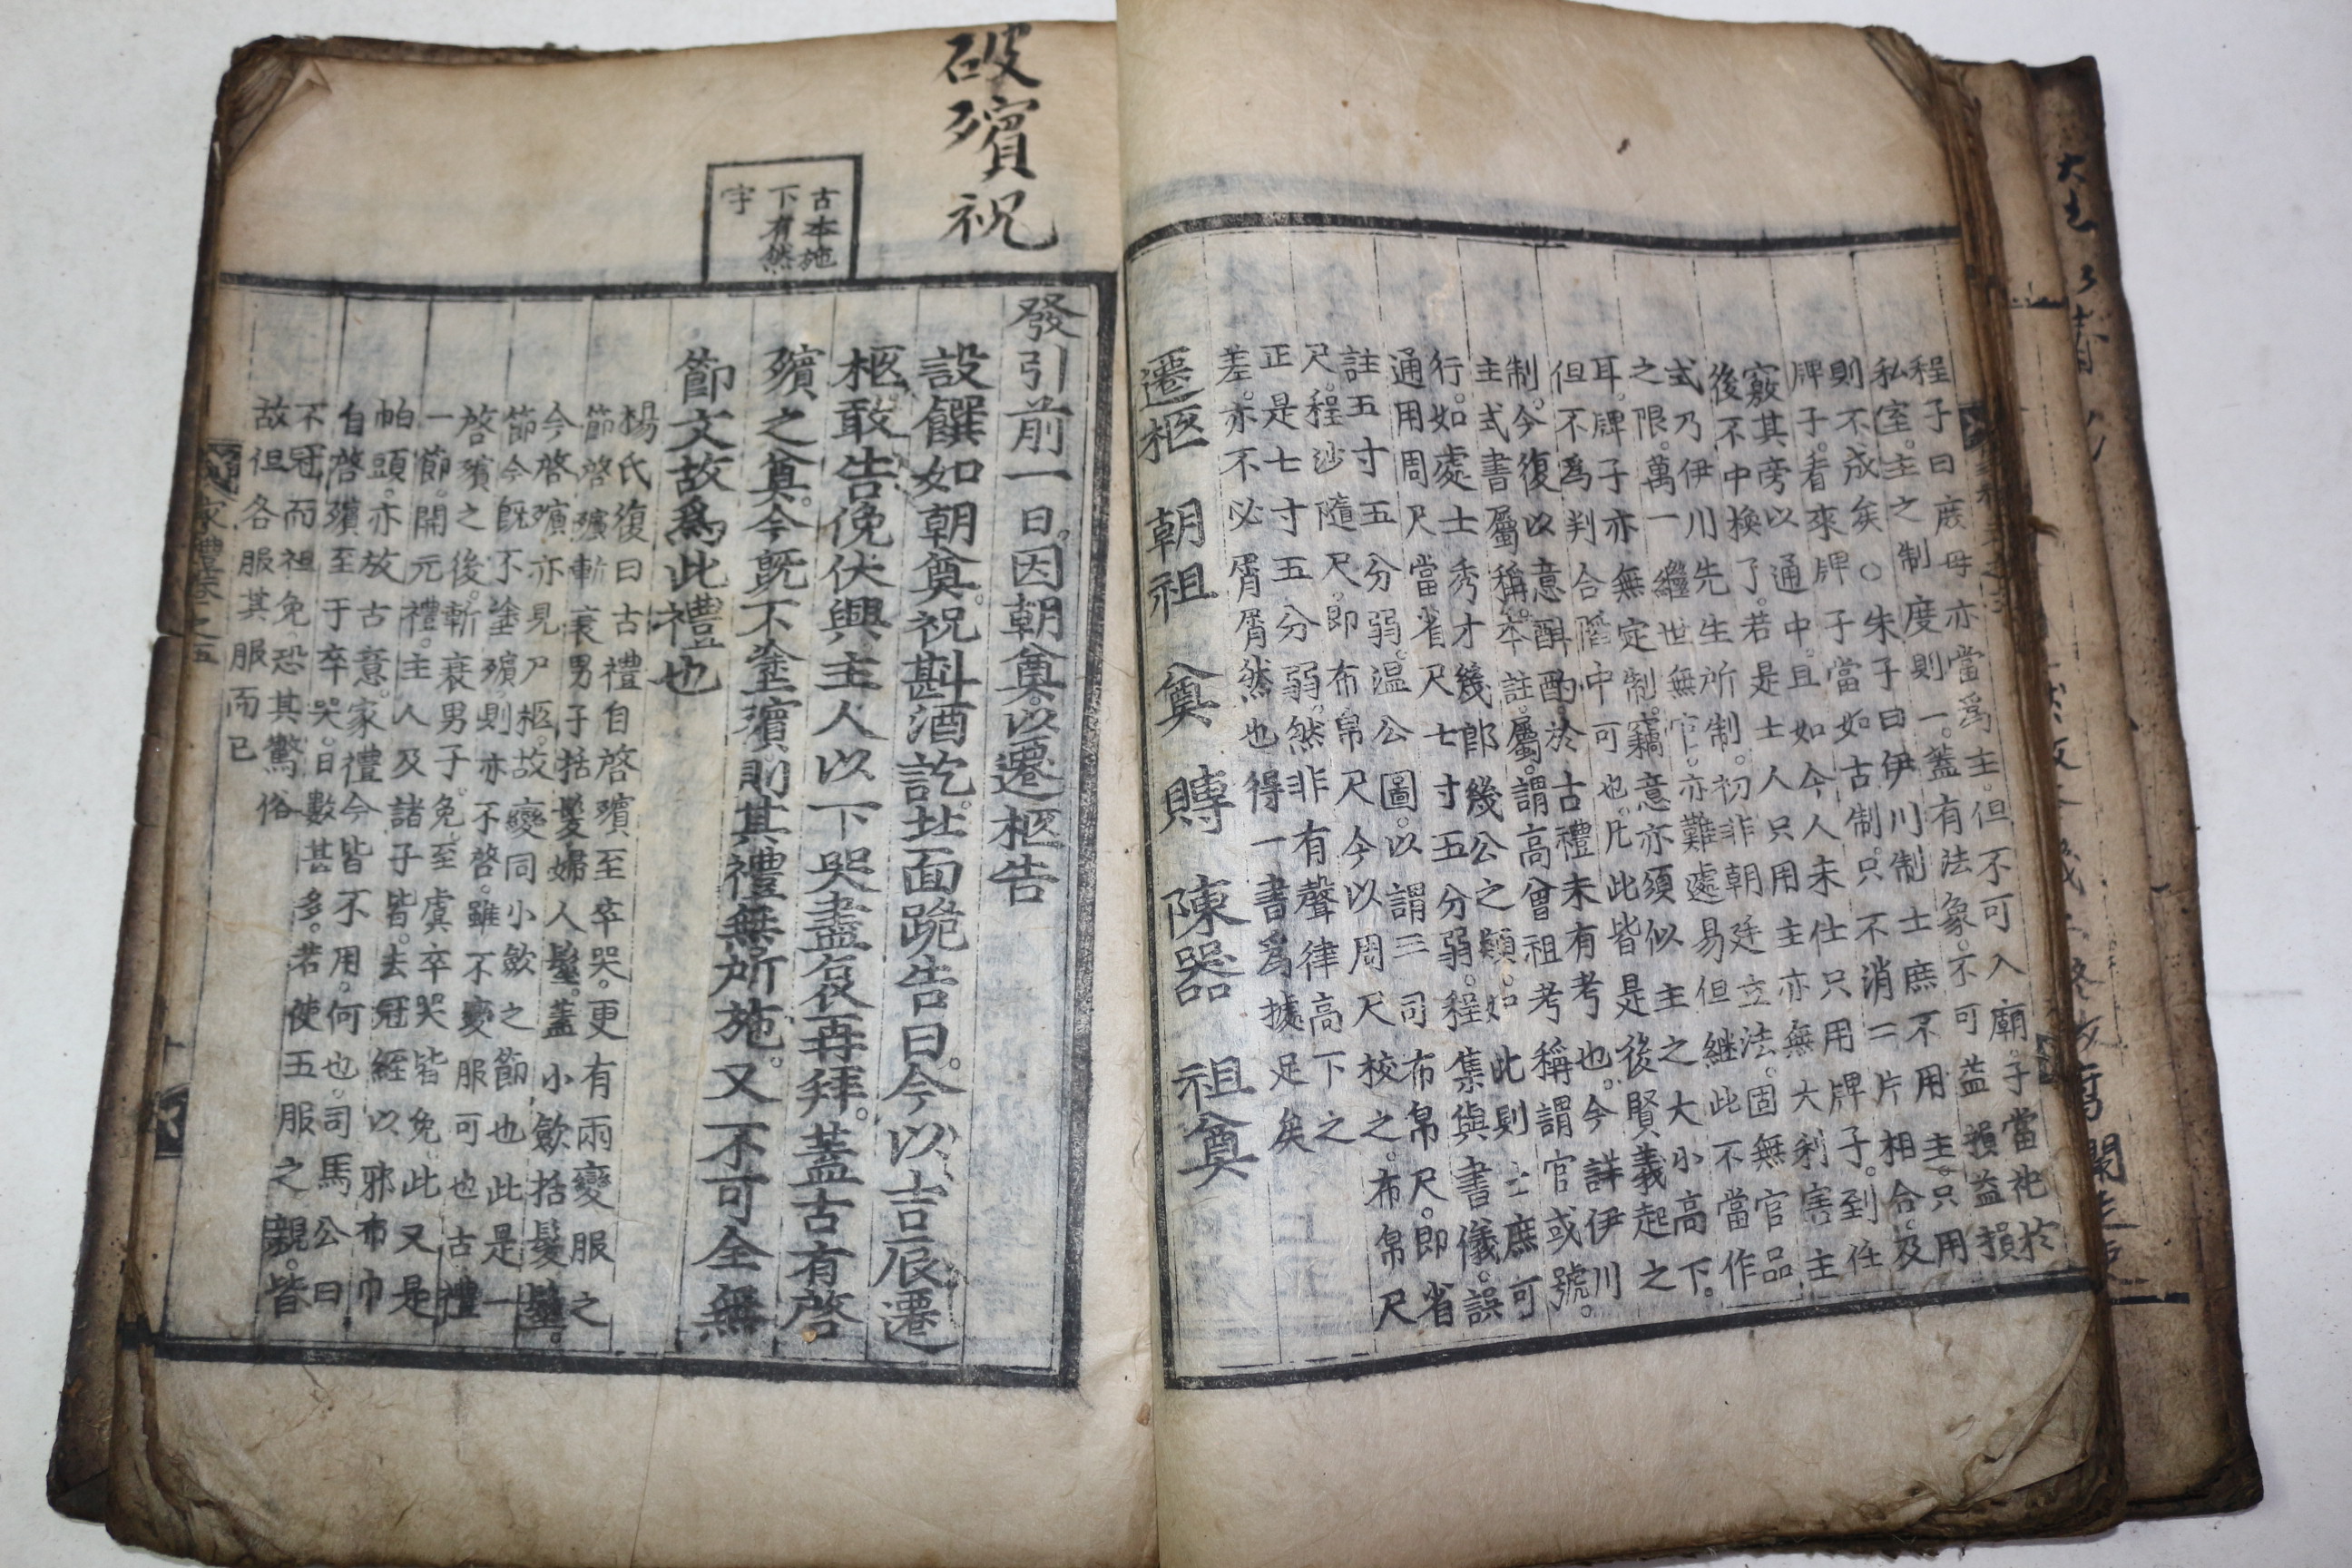 程子曰庶母亦當爲主。但不可入廟。子當祀於
私室。主之制度則一。蓋有法象。不可益損益損
則不成矣。○朱子曰伊川制士庶不用主。只用
牌子。看來牌子當如古制。只不消二片相合。及
竅其旁以通中。且如今人未仕只用牌子。到任
後不中換了。若是士人只用主亦無大利害主
式乃伊川先生所制。初非朝廷立法。固無官品
之限。萬一繼世無官。亦難遽易但継此不當作
耳。牌子亦無定制。竊意亦須似主之大小高下。
但不爲判合陷中可也。凡此皆是後賢義起之
制。今復以意斟酌。於古禮未有考也。今詳伊川
主式書屬稱。本註。屬。謂高曾祖考。稱謂官或號。
行。如處士秀才幾郎幾公之類。如此則士庶可
通用周尺當省尺七寸五分弱。程集與書儀。誤
註五寸五分弱。溫公圖。以謂三司布帛尺。即省
尺。程沙隨尺。即布帛尺今以周尺校之。布帛尺
正是七寸五分弱。然非有聲律高下之
差。亦不必屑屑然也得一書爲據足矣
遷柩 朝祖 奠 賻 陳器 祖奠
破殯祝
古本施
下有然
字
發引前一日。因朝奠。以遷柩告
設饌如朝奠。祝斟酒訖。北面跪告曰。今以吉辰遷
柩。敢告俛伏興主人以下哭盡哀再拜。蓋古有啓
殯之奠。今旣不塗殯。則其禮無所施。又不可全無
節文故爲此禮也
楊氏復曰古禮自啓殯至卒哭。更有兩變服之
節啓殯斬衰男子括髮婦人髽。蓋小歛括髮髽。
今啓殯亦見尸柩。故變同小歛之節也此是一
節今旣不塗殯則亦不啓。雖不變服可也古禮
啓殯之後。斬衰男子免。至虞卒哭皆免。此又是
一節。開元禮。主人及諸子皆。去冠絰以邪布巾
帕頭。亦放古意。家禮今皆不用。何也。司馬公曰
自啓殯至于卒哭。日數甚多。若使五服之親。皆
不冠而袒免。恐其驚俗
故但各服其服而已